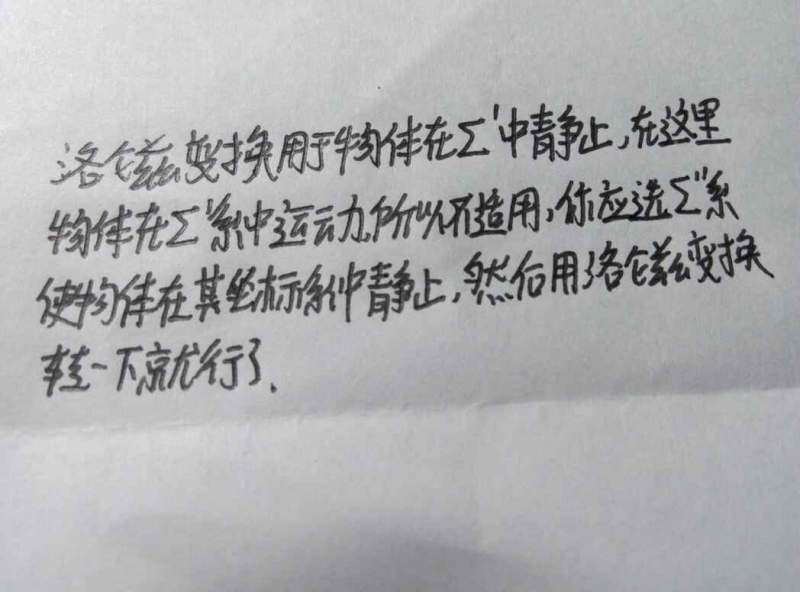 洛仑兹变换用于物体在Σ'中静止,在这里
物体在Σ'系中运动,所以不适用,你应选Σ''系
使物体在其坐标系中静止,然后用洛仑兹变换
转一下就行了.